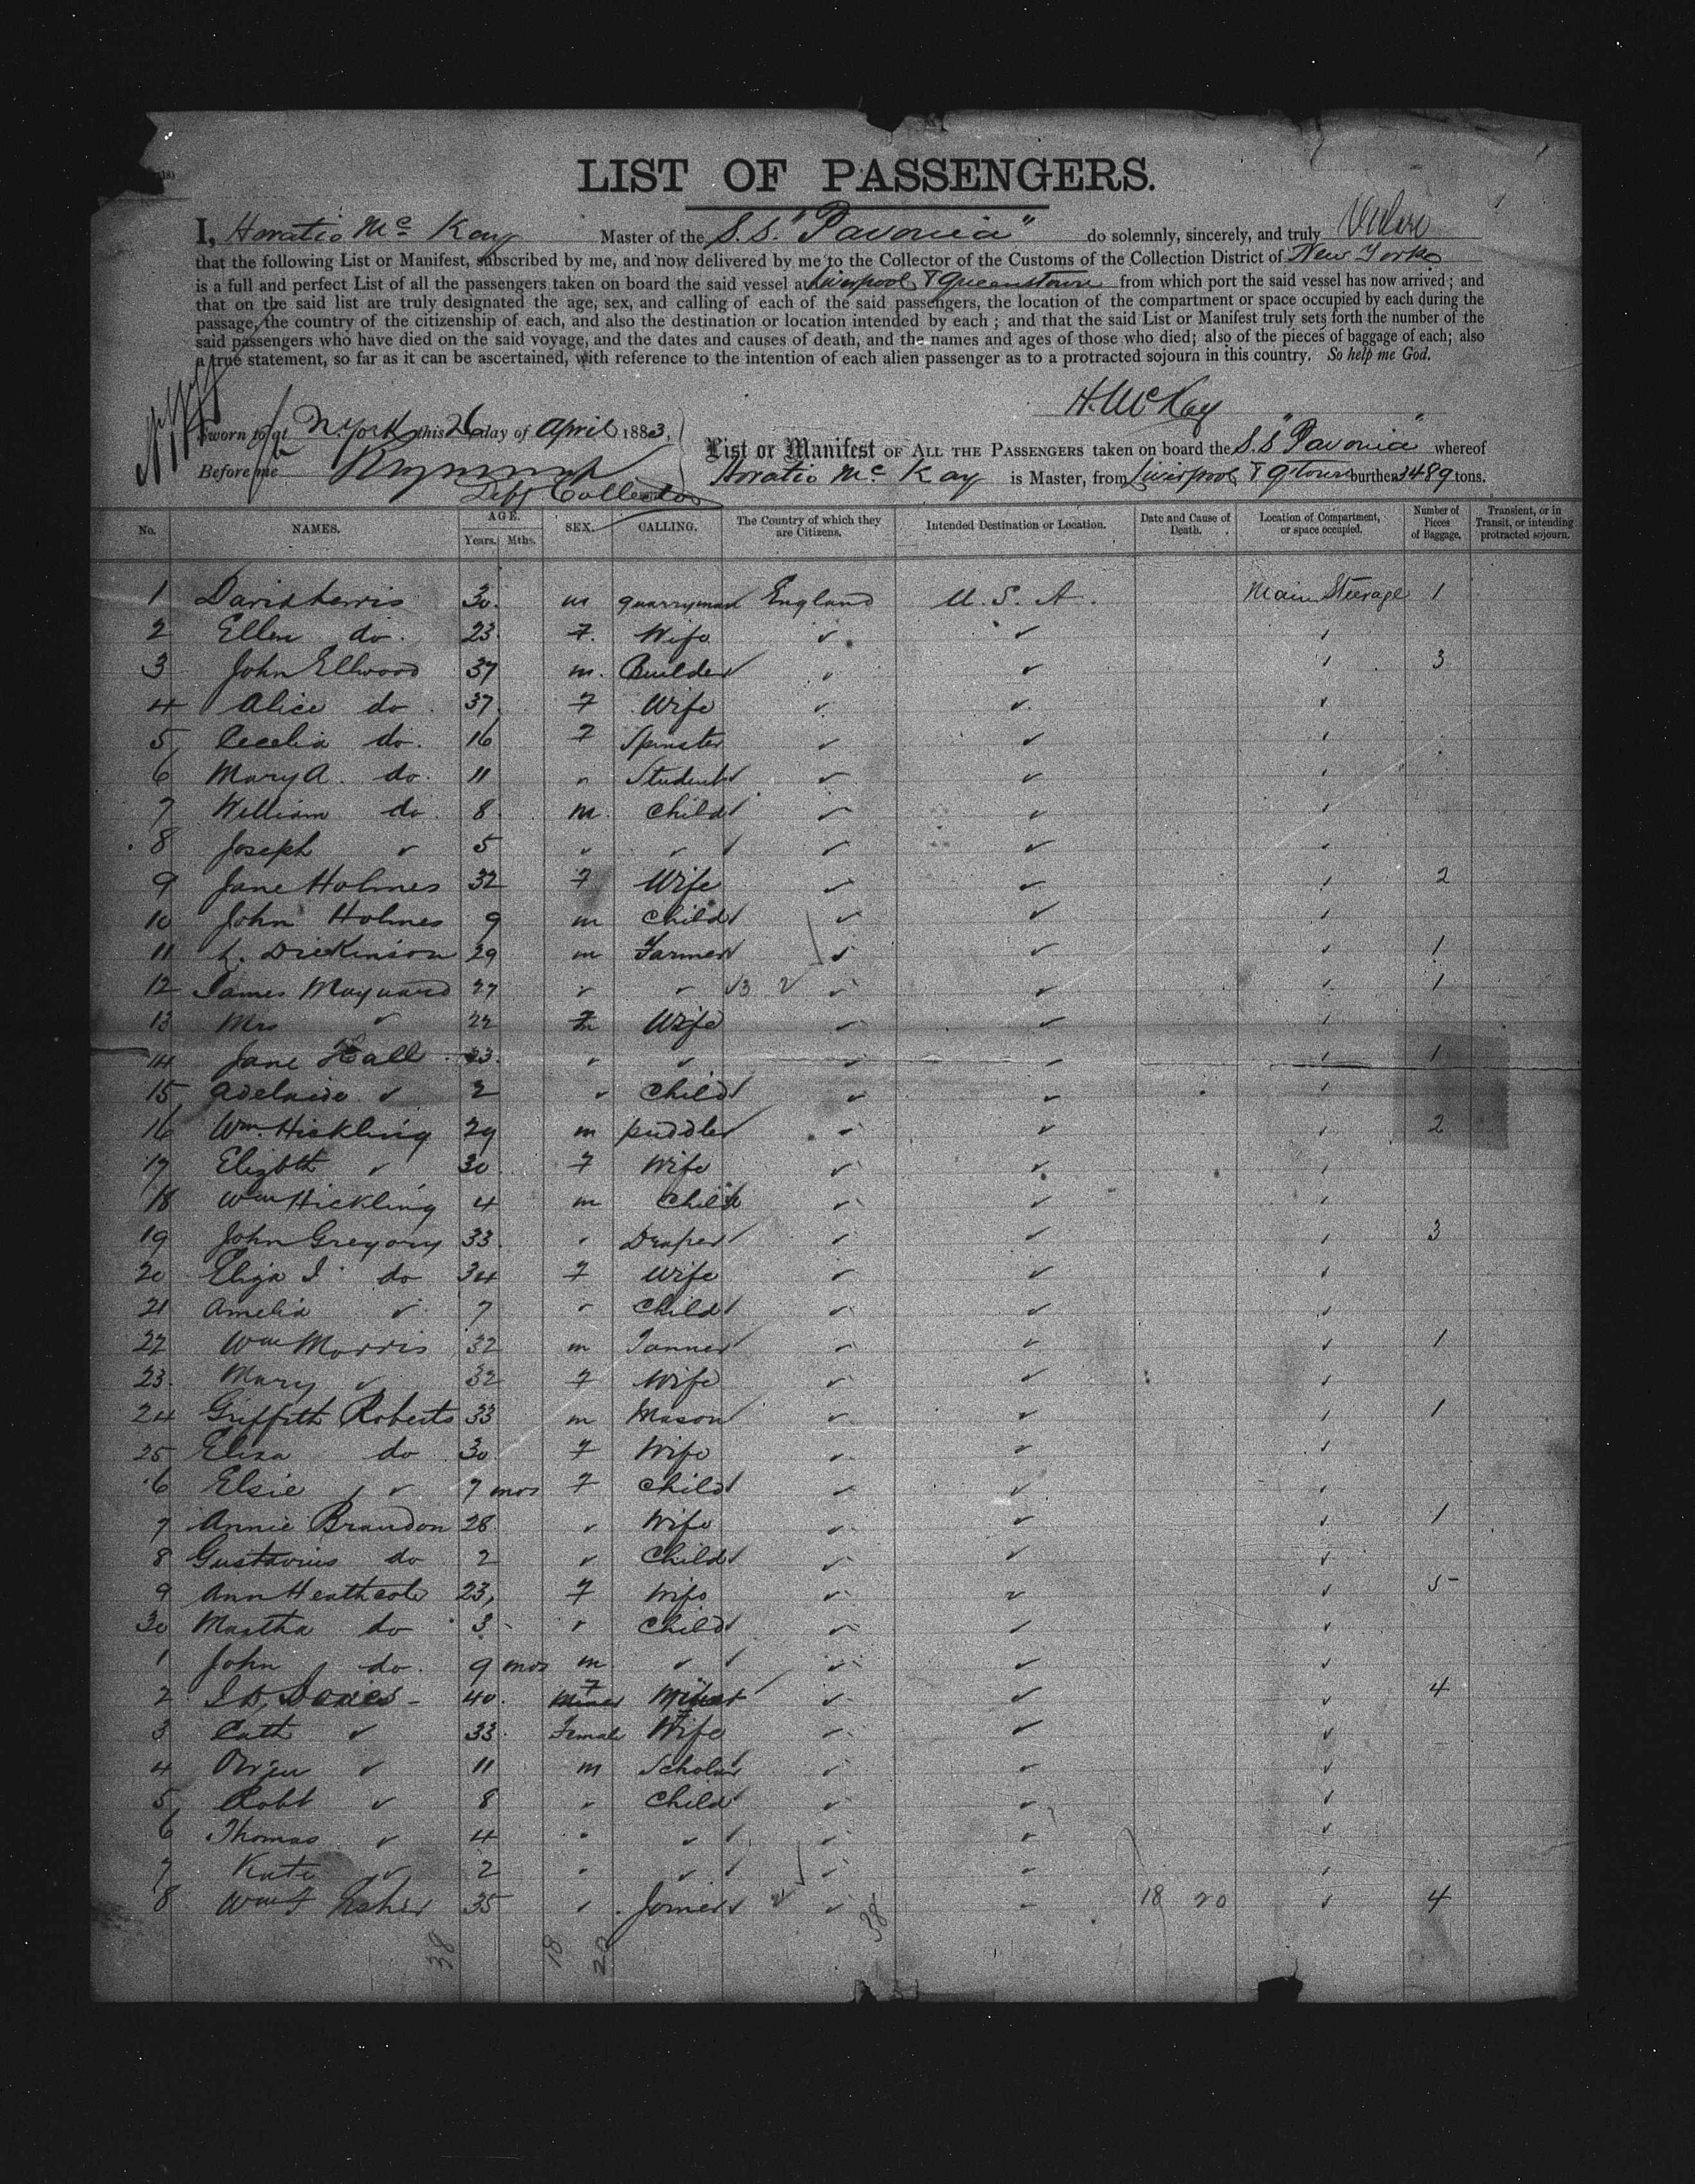 LIST OF PASSENGERS.
I, Horatio Mc Kay Master of the S.S. "Pavonia" do solemnly, sincerely, and truly
that the following List or Manifest, subscribed by me, and now delivered by me to the Collector of the Customs of the Collection District of New York
is a full and perfect List of all the passengers taken on board the said vessel at Liverpool & Queenstown from which port the said vessel has now arrived; and
that on the said list are truly designated the age, sex, and calling of each of the said passengers, the location of the compartment or space occupied by each during the
passage, the country of the citizenship of each, and also the destination or location intended by each; and that the said List or Manifest truly sets forth the number of the
said passengers who have died on the said voyage, and the dates and causes of death, and the names and ages of those who died; also of the pieces of baggage of each; also
a true statement, so far as it can be ascertained, with reference to the intention of each alien passenger as to a protracted sojourn in this country. So help me God.
H. McKay
Sworn to at N. York this 26 day of April 1883,
Before me
Dept Collector
List or Manifest OF ALL THE PASSENGERS taken on board the S.S "Pavonia" whereof
Horatio Mc Kay is Master, from Liverpool & Q'town burthen 3489 tons.
No. NAMES. AGE. Years. Mths. SEX. CALLING. The Country of which they are Citizens. Intended Destination or Location. Date and Cause of Death. Location of Compartment, or space occupied. Number of Pieces of Baggage. Transient, or in Transit, or intending protracted sojourn.
1 David 30 m quarryman England U.S.A. Main Steerage 1
2 Ellen do. 23 F. Wife ✓ ✓ ✓
3 John Ellwood 37 m. Builder ✓ ✓ ✓ 3
4 Alice do. 37 F Wife ✓ ✓ ✓
5 Cecelia do. 16 F Spinster ✓ ✓ ✓
6 Mary A. do. 11 " Student ✓ ✓ ✓
7 William do. 8 m. Child ✓ ✓ ✓
8 Joseph ✓ 5 ✓ ✓ ✓ ✓ ✓
9 Jane Holmes 32 F Wife ✓ ✓ ✓ 2
10 John Holmes 9 m Child ✓ ✓ ✓
11 Dickinson 29 m Farmer ✓ ✓ ✓ 1
12 James Maynard 27 ✓ ✓ 13 2 ✓ ✓ ✓ 1
13 Mrs ✓ 22 F Wife ✓ ✓ ✓
14 Jane Hall 23 ✓ ✓ ✓ ✓ ✓ 1
15 Adelaide ✓ 2 ✓ Child ✓ ✓ ✓
16 Wm. Hickling 29 m puddler ✓ ✓ ✓ 2
17 Elizbth ✓ 30 F Wife ✓ ✓ ✓
18 Wm Hickling 4 m Child ✓ ✓ ✓
19 John Gregory 33 " Draper ✓ ✓ ✓ 3
20 Eliza J. do 34 F Wife ✓ ✓ ✓
21 Amelia ✓ 7 ✓ Child ✓ ✓ ✓
22 Wm Morris 32 m Tanner ✓ ✓ ✓ 1
23 Mary ✓ 32 F Wife ✓ ✓ ✓
24 Griffith Roberts 33 m Mason ✓ ✓ ✓ 1
25 Eliza do 30 F Wife ✓ ✓ ✓
6 Elsie ✓ 7 mos F Child ✓ ✓ ✓
7 Annie Brandon 28 ✓ Wife ✓ ✓ ✓ 1
8 Gustavius do 2 ✓ Child ✓ ✓ ✓
9 Ann Heathcote 23 F Wife ✓ ✓ ✓ 5
30 Martha do 3 ✓ Child ✓ ✓ ✓
1 John do. 9 mos m ✓ ✓ ✓ ✓
2 Davies 40 ✓ ✓ ✓ 4
3 Cath ✓ 33 Female Wife ✓ ✓ ✓
4 Owen ✓ 11 m Scholar ✓ ✓ ✓
5 Robt ✓ 8 ✓ Child ✓ ✓ ✓
6 Thomas ✓ 4 " ✓ ✓ ✓ ✓
7 Kate ✓ 2 " ✓ ✓ ✓ ✓
8 Wm F Fisher 35 ✓ Joiner 2 ✓ 18 20 ✓ 4
38 18 20 38